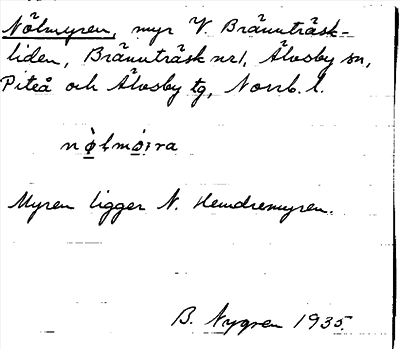 Nölmyren, myr V. Brännträsk-
liden, Brännträsk nr 1, Älvsby sn,
Piteå och Älvsby tg, Norrb. l.
nø̀lmø̀ıra
Myren ligger N. Hemdremyren.
B. Nygren 1935.